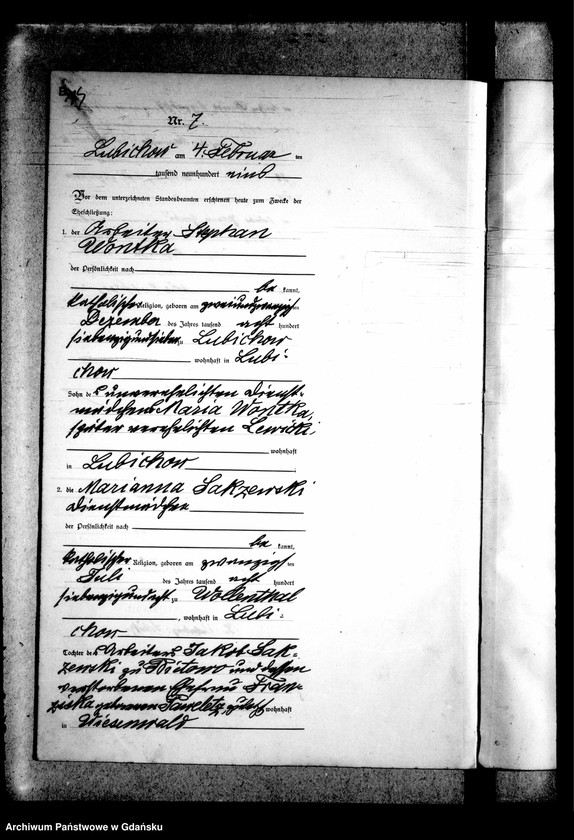 Nr. 7.
Lubichow am 4. Februar ten
tausend neunhundert eins
Vor dem unterzeichneten Standesbeamten erschienen heute zum Zwecke der
Eheschließung:
1. der Arbeiter Stephan
Wontka
der Persönlichkeit nach
be kannt,
katholischer Religion, geboren am zweiundzwanzigsten
Dezember des Jahres tausend acht hundert
siebenzigundsieben Lubichow
wohnhaft in Lubi-
chow
Sohn der unverehelichten Dienst-
mädchens Maria Wontka,
später verehelichten Lewicki
wohnhaft
in Lubichow
2. die Marianna Sakzewski
Dienstmädchen
der Persönlichkeit nach
be kannt,
katholischer Religion, geboren am zwanzigsten
Juli des Jahres tausend acht hundert
siebenzigundacht zu Wollenthal
, wohnhaft in Lubi-
chow
Tochter des Arbeiters Jakob Sak-
zewski zu und dessen
verstorbenen Ehefrau Fran-
ziska geborenen zuletzt wohnhaft
in Wiesenwald
Archiwum Państwowe w Gdańsku